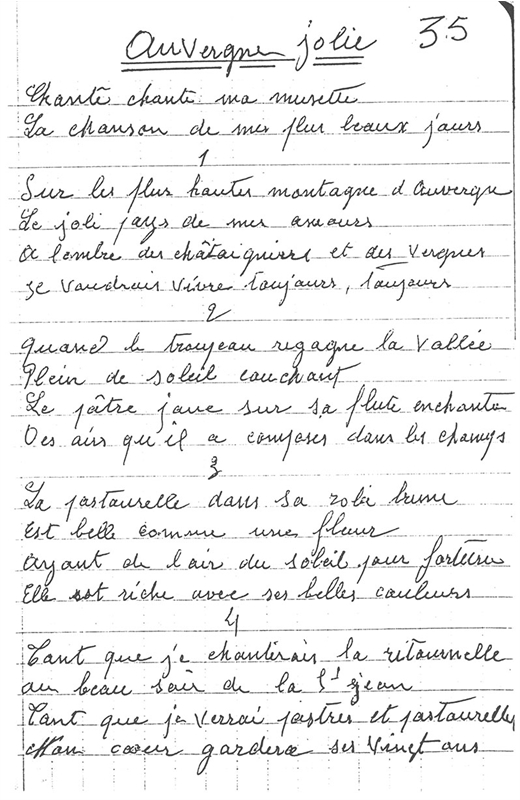 Auvergne jolie 35
Chante chante ma musette
La chanson de mes plus beaux jours
1
Sur les plus hautes montagne d Auvergne
Le joli pays de mes amours
A l'ombre des châtaigniers et des vergnes
Je voudrais vivre toujours, toujours
2
Quand le troupeau regagne la vallée
Plein de soleil couchant
Le pâtre joue sur sa flute enchantée
Des airs qu'il a composés dans les champs
3
La pastourelle dans sa robe brune
Est belle comme une fleur
Ayant de l'air du soleil pour fortune
Elle est riche avec ses belles couleurs
4
Tant que je chanterais la ritournelle
au beau soir de la St Jean
Tant que je verrai pastres et pastourelles
Mon coeur gardera ses vingt ans